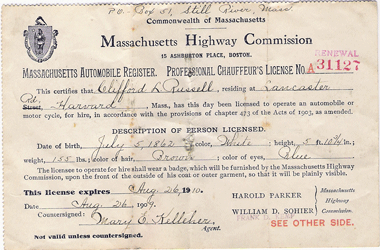 P.O. Box 51, Still River, Mass
Commonwealth of Massachusetts
Massachusetts Highway Commission
15 ASHBURTON PLACE, BOSTON.
RENEWAL
MASSACHUSETTS AUTOMOBILE REGISTER. PROFESSIONAL CHAUFFEUR'S LICENSE No. A 31127
This certifies that Clifford L Russell, residing at Lancaster
Rd. Street, Harvard, Mass., has this day been licensed to operate an automobile or
motor cycle, for hire, in accordance with the provisions of chapter 473 of the Acts of 1903, as amended.
DESCRIPTION OF PERSON LICENSED.
Date of birth, July 5, 1862 color, White height, 5 ft 10½ in.;
weight, 155 lbs; color of hair, Brown color of eyes, Blue
The licensee to operate for hire shall wear a badge, which will be furnished by the Massachusetts Highway
Commission, upon the front of the outside of his coat or outer garment, so that it will be plainly visible.
This license expires Aug. 26, 1910.
Date, Aug. 26, 1909.
Countersigned: Mary E. Kelleher,
Agent.
Not valid unless countersigned.
HAROLD PARKER
WILLIAM D. SOHIER
Massachusetts
Highway
Commission.
SEE OTHER SIDE.